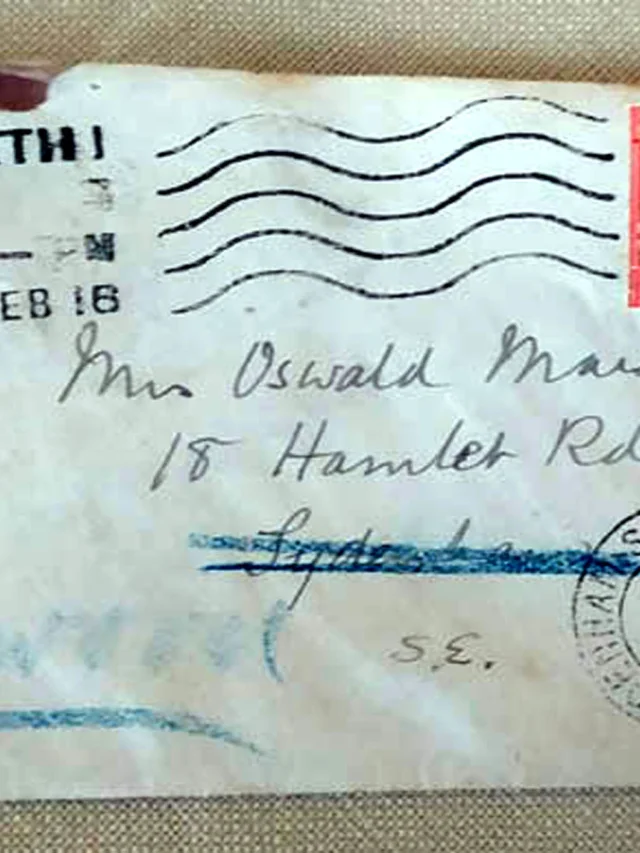 TH I
EB 16
Mrs Oswald
18 Hamlet Rd
Sydenham
S.E.